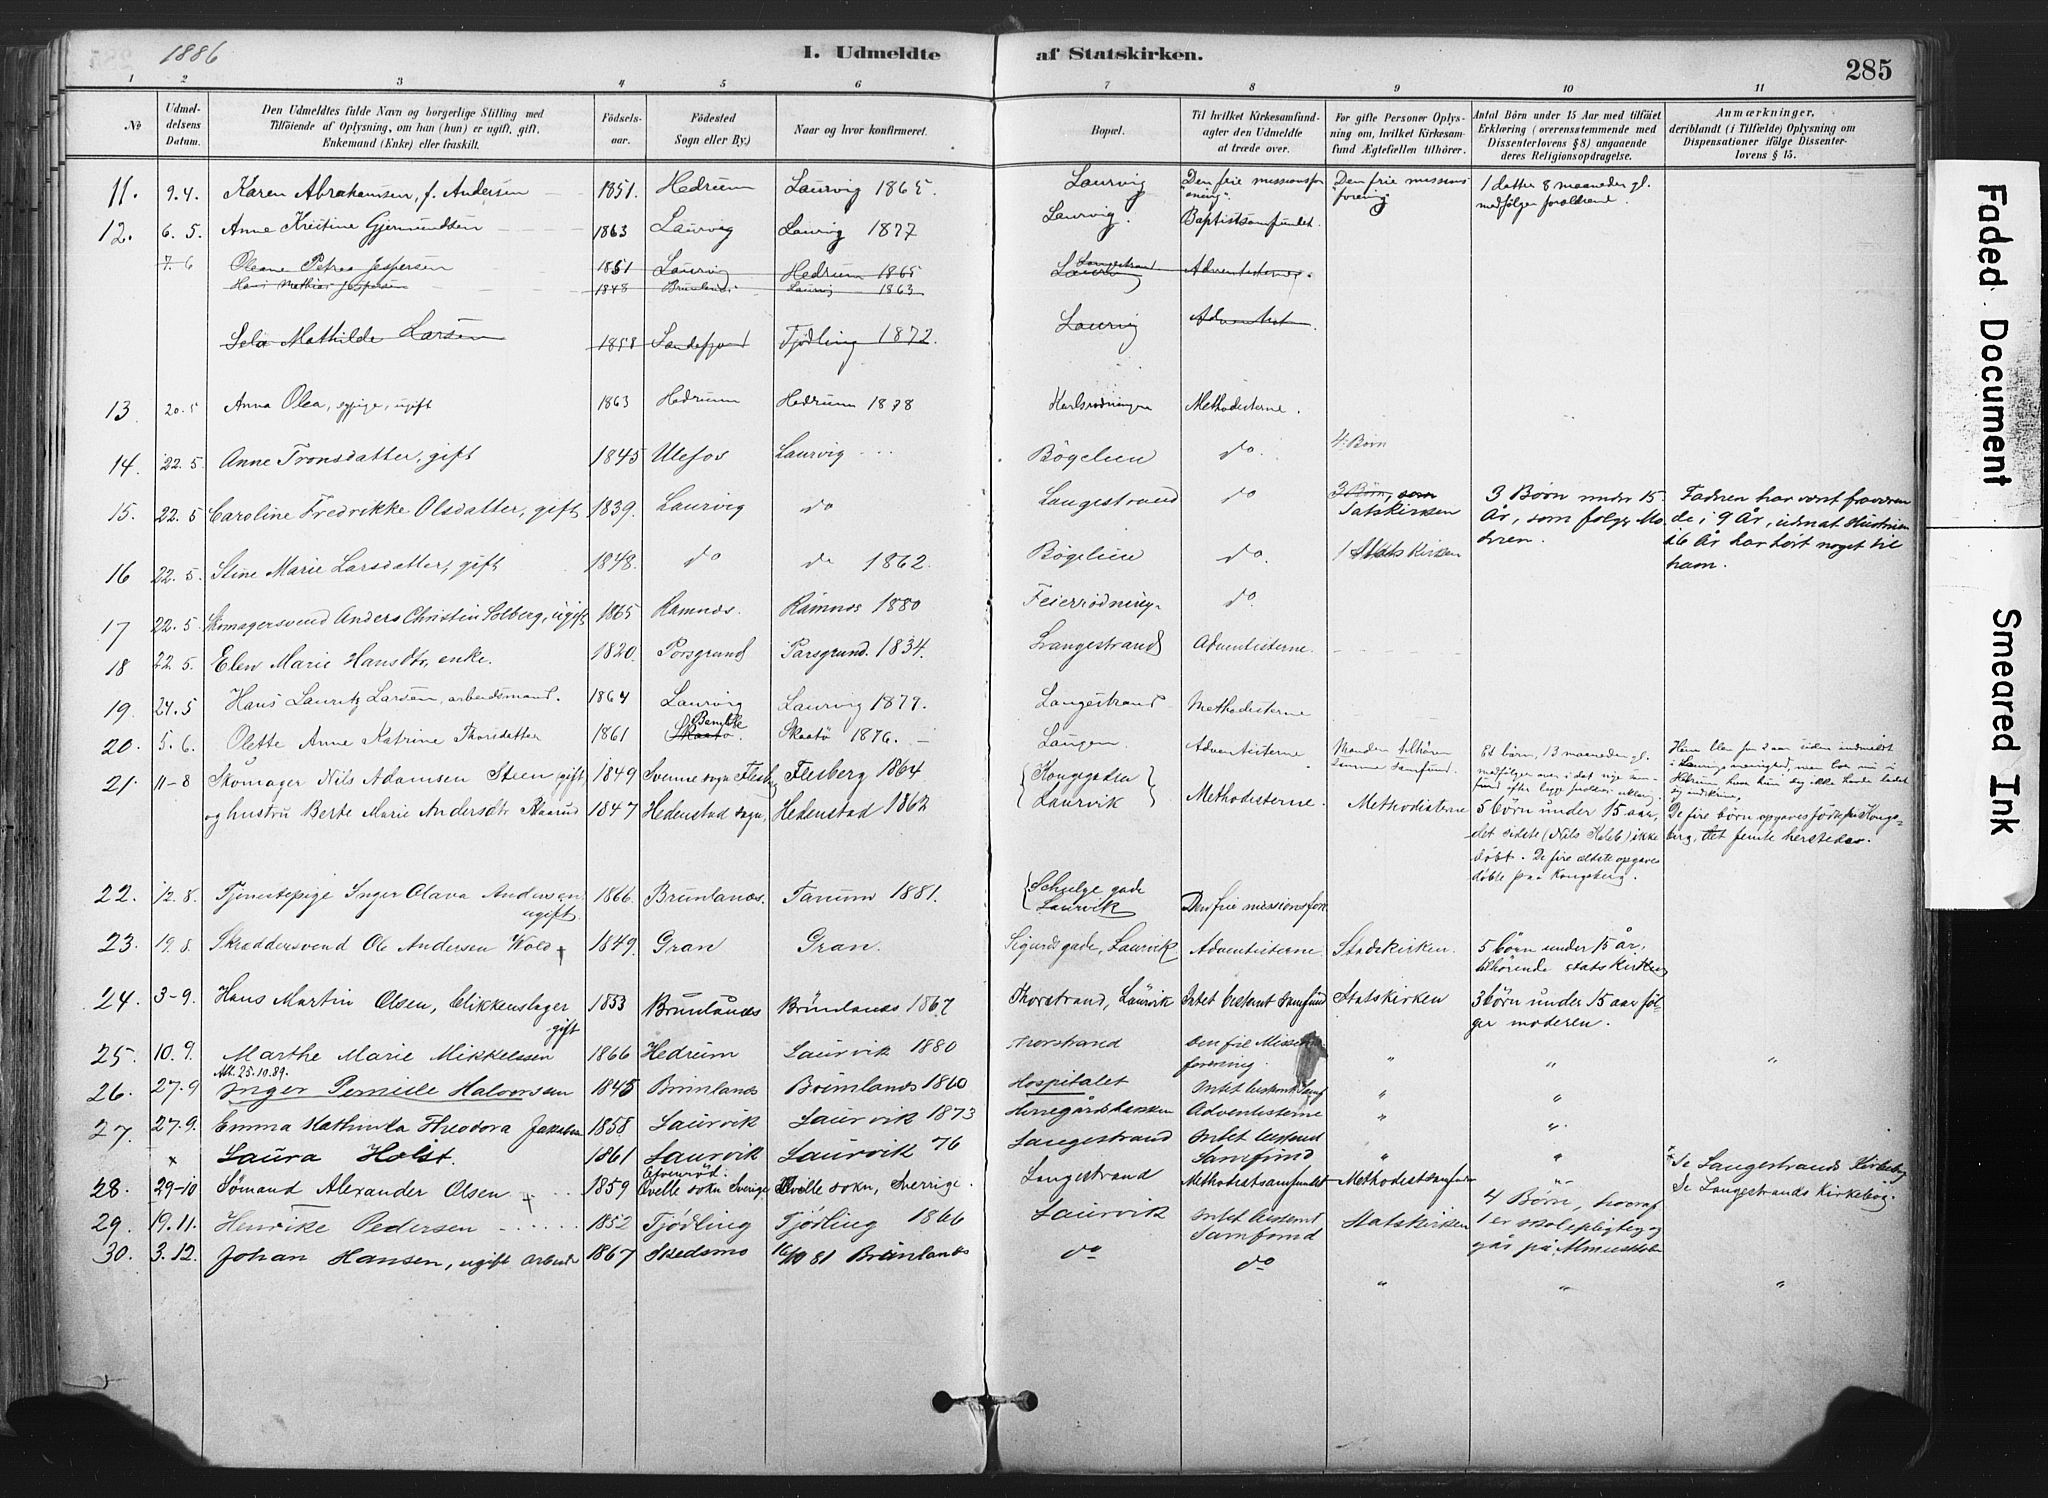 1886
I. Udmeldte af Statskirken.
285
1 2 3 4 5 6 7 8 9 10 11
No
Udmel-
delsens
Datum.
Den Udmeldtes fulde Navn og borgerlige Stilling med
Tilföiende af Oplysning, om han (hun) er ugift, gift,
Enkemand (Enke) eller fraskilt.
Födsels-
aar.
Födested
Sogn eller By.)
Naar og hvor konfirmeret.
Bopæl.
Til hvilket Kirkesamfund-
agter den Udmeldte
at træde over.
For gifte Personer Oplys-
ning om, hvilket Kirkesam-
fund Ægtefællen tilhörer.
Antal Börn under 15 Aar med tilföiet
Erklæring (overensstemmende med
Dissenterlovens § 8) angaaende
deres Religionsopdragelse.
Anmærkninger,
deriblandt (i Tilfælde) Oplysning om
Dispensationer ifölge Dissenter-
lovens § 15.
11. 9.4. Karen Abrahamsen, f. Andersen 1851. Hedrum Laurvig 1865. Laurvig Den frie missionsfor "Den frie missions
ening". forening" 1 datter 8 maaneder gl.
medfølger forældrene.
12. 6.5. Anne Kristine Gjermundsen 1863 Laurvig Laurvig 1877 Laurvig. Baptistsamfundet.
7.6 Oleane Petrea Jespersen 1851 Laurvig Hedrum 1865 Langestrand
Laurvig Adventisterne.
Hans Mathias Jespersen 1848 Brunlanes Laurvig 1863
Mathilde Larsen 1858 Sandefjord Tjødling 1872. Laurvig Adventist.
13 20.5 Anna Olea, ugift 1863 Hedrum Hedrum 1878 Karlsrødningen Methodisterne.
14. 22.5. Anne Tronsdatter, gift 1845 Ulefos Laurvig Bøgelien do. 4 Børn
15. 22.5 Caroline Fredrikke Olsdatter, gift 1839. Laurvig do Langestrand do 3 Børn, som
Statskirken 3 Børn under 15
År, som følger Mo
dren. Fadren har vært fraværen
de i 9 År, uden at Hustruen
i 6 År har hørt noget til
ham.
16 22.5. Stine Marie Larsdatter, gift 1848. do do 1862. Bøgelien do. 1 Statskirken
17 22.5 Skomagersvend Anders Christin Solberg, ugift 1865 Ramnæs. Ramnæs 1880 Feierrødningen do.
18 22.5. Elen Marie Hansdtr, enke. 1820. Porsgrund Porsgrund. 1834. Langestrand Adventisterne.
19. 24.5 Hans Lauritz Larsen, arbeidsmand. 1864 Laurvig Laurvig 1879. Langestrand Methodisterne
20. 5.6. Olette Anne Katrine Thorsdatter 1861 Bamble
Skaatø. Skaatø 1876. Laugen. Adventisterne Manden tilhører
samme samfund. Et børn, 13 maaneder gl.
21. 11-8 Skomager Nils Adamsen Steen, gift 1849 Svenne sogn Flesberg Flesberg 1864 Kongegaden
Laurvik Methodisterne. Methodisterne
og hustru Berte Marie Andersdtr Skaarud 1847 Hedenstad sogn, Hedenstad 1862 5 børn under 15 aar,
det sidste (Nils Kaleb) ikke
døbt. De fire ældste opgaves
døbte paa Kongsberg. De fire børn opgaves født på Kongs-
berg, det femte hersteds.
22. 12.8. Tjenestepige Inger Olava Andersen
ugift. 1866. Brunlanæs. Tanum 1881. Schulze gade
Laurvik Den frie missionsfor.
23. 19.8. Skræddersvend Ole Andersen Wold 1849. Gran Gran. Sigurdsgade, Laurvik Adventisterne Statskirken. 5 børn under 15 år,
tilhörende statskirken
24. 3-9. Hans Martin Olsen, Blikkenslager
gift 1853 Brunlanæs Brunlanæs 1867 Thorstrand, Laurvik Intet bestemt samfund Statskirken 3 børn under 15 aar føl-
ger moderen.
25. 10.9. Marthe Marie Mikkelssen 1866 Hedrum Laurvik 1880 Torstrand Den frie Missions
forening. " " "
Att. 25.10.89.
26. 27.9 Inger Pernille Halvorsen 1845 Brunlanæs Brunlanæs 1860 Hospitalet Intet bestemt Samf " "
27. 27.9. Emma Kathinka Theodora Jakobsen 1858 Laurvik Laurvik 1873 Herregårdsbakken Adventisterne " "
x Laura Holst. 1861 Laurvik Laurvik 76 Langestrand Intet bestemt
Samfund " " * Se Langestrands Kirkebog
28. 29-10 Sømand Alexander Olsen 1859 Qvelle sokn Sverige Qvelle sokn, Sverrige. Langestrand Methodistsamfundet Methodistsamfundet " Se Langestrands Kirkebog.
29. 19.11. Henrike Pedersen 1852 Tjödling Tjödling 1866 Laurvik Intet bestemt
Samfund Statskirken 4 Børn, hvoraf
1 er skolepligtig og
går på Almueskolen
30. 3.12. Johan Hansen, ugift arbeid 1867 Skedsmo 16/10 81 Brunlanæs do do " " "
Faded Document
Smeared Ink